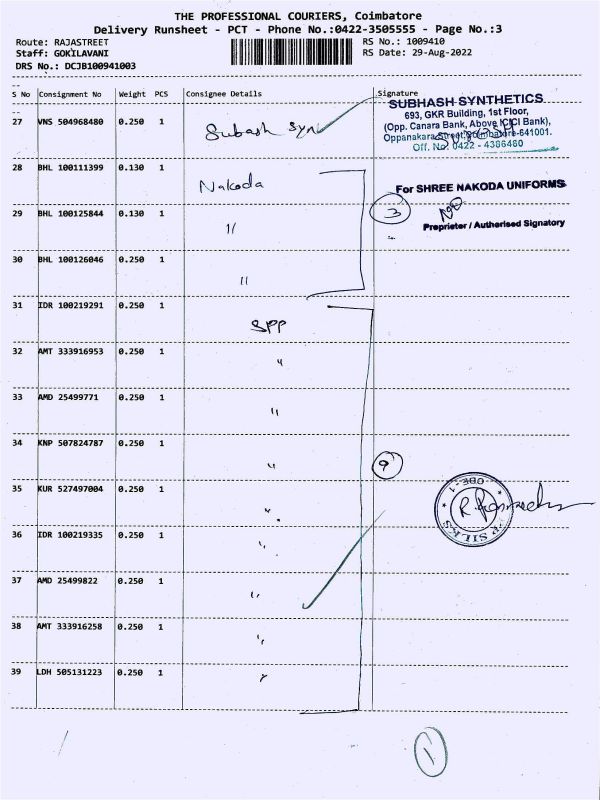 THE PROFESSIONAL COURIERS, Coimbatore
Delivery Runsheet - PCT - Phone No.:0422-3505555 - Page No.:3
Route: RAJASTREET
RS No.: 1009410
Staff: GOKILAVANI
RS Date: 29-Aug-2022
DRS No.: DCJB100941003
S No Consignment No Weight PCS Consignee Details Signature
27 VNS 504968480 0.250 1 Subash Syn
SUBHASH SYNTHETICS
693, GKR Building, 1st Floor,
(Opp. Canara Bank, Above ICICI Bank),
Oppanakara Street, Coimbatore-641001.
Off. No. 0422 - 4386460
28 BHL 100111399 0.130 1 Nakoda
For SHREE NAKODA UNIFORMS
3
Proprieter / Authorised Signatory
29 BHL 100125844 0.130 1 "
30 BHL 100126046 0.250 1 "
31 IDR 100219291 0.250 1 SPP
32 AMT 333916953 0.250 1 "
33 AMD 25499771 0.250 1 "
34 KNP 507824787 0.250 1 "
9
35 KUR 527497004 0.250 1 "
36 IDR 100219335 0.250 1 "
37 AMD 25499822 0.250 1 "
38 AMT 333916258 0.250 1 "
39 LDH 505131223 0.250 1 "
1